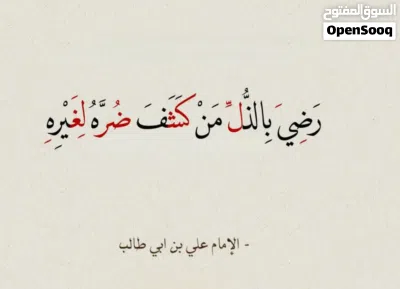 السوق المفتوح
OpenSooq
رَضِيَ بِالذُّلِّ مَنْ كَشَفَ ضُرَّهُ لِغَيْرِهِ
- الإمام علي بن ابي طالب